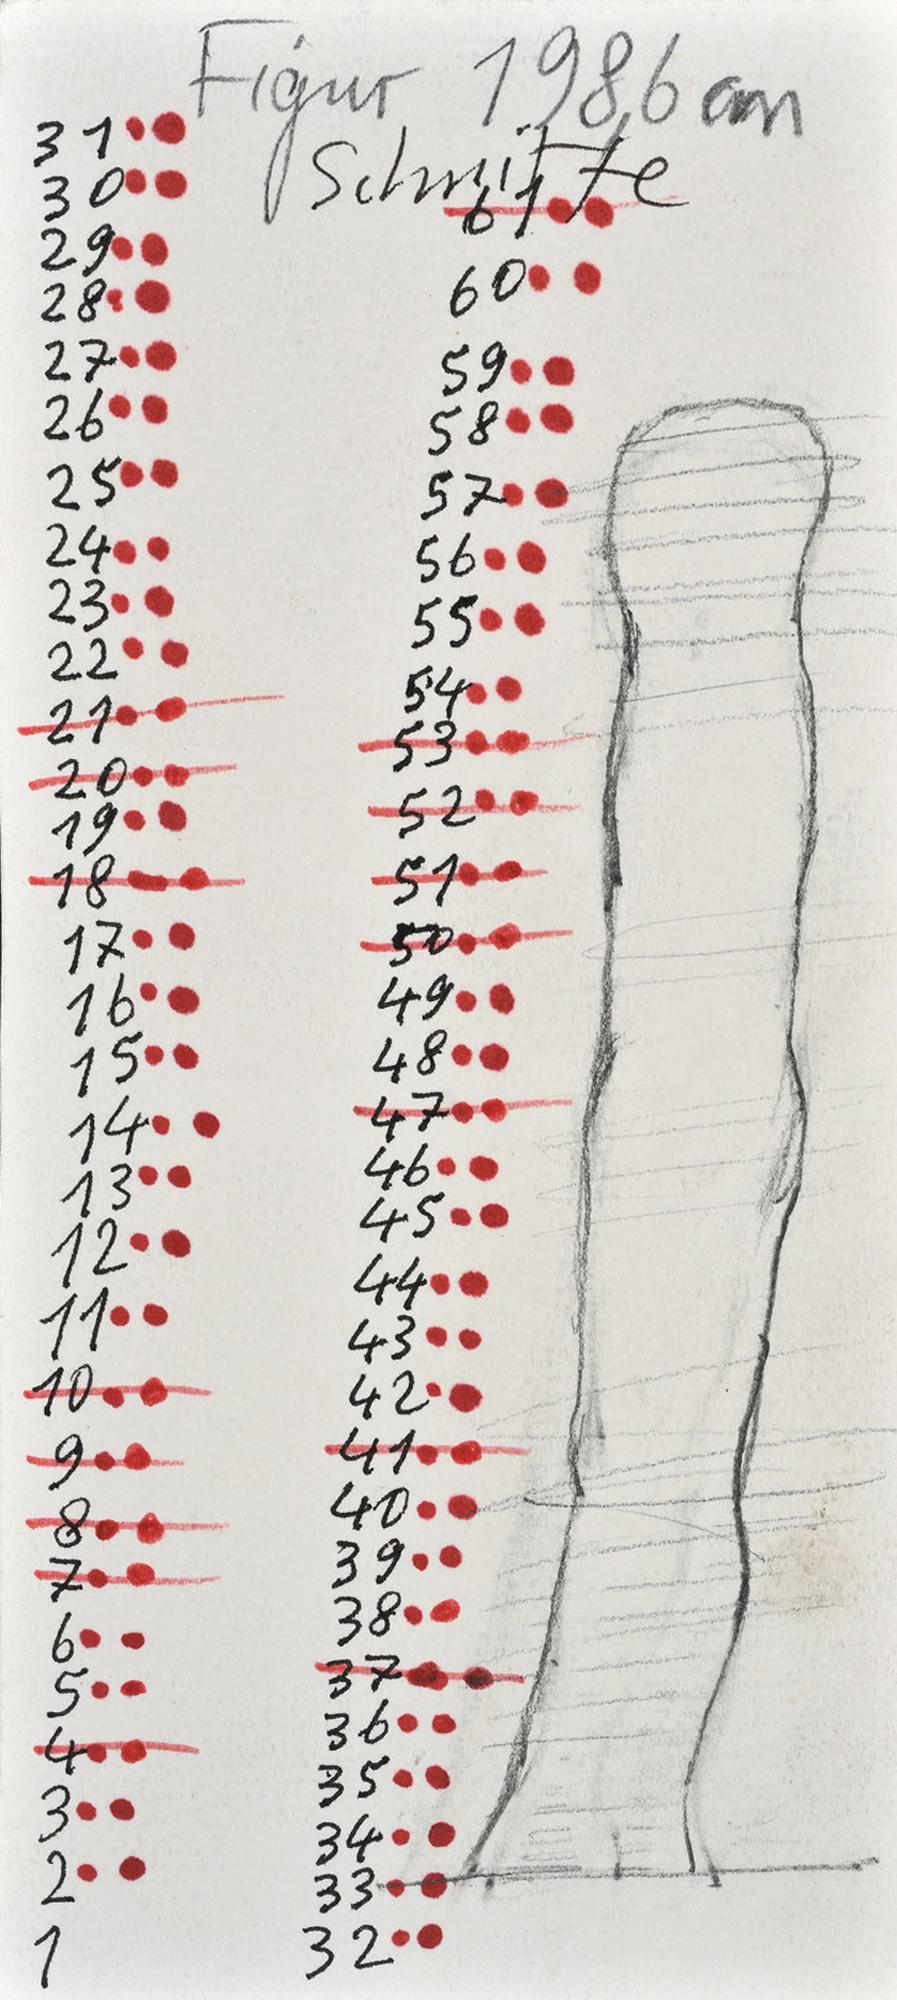 Figur 1986 am
Schnitte
31
30
29
28
27
26
25
24
23
22
21
20
19
18
17
16
15
14
13
12
11
10
9
8
7
6
5
4
3
2
1
61
60
59
58
57
56
55
54
53
52
51
50
49
48
47
46
45
44
43
42
41
40
39
38
37
36
35
34
33
32